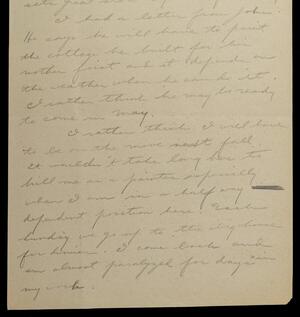 I had a letter from John.
He says he will have to paint
the cottage he built for his
mother first and it depends on
the weather when he can do it.
I rather think he may be ready
to come in May.
I rather think I will have
to be on the move next fall.
It wouldn't take long here to
kill me as a painter especially
when I am in a half way
dependent position here. Each
Sunday we go up to the big house
for dinner. I come back and
am almost paralyzed for days in
my work.